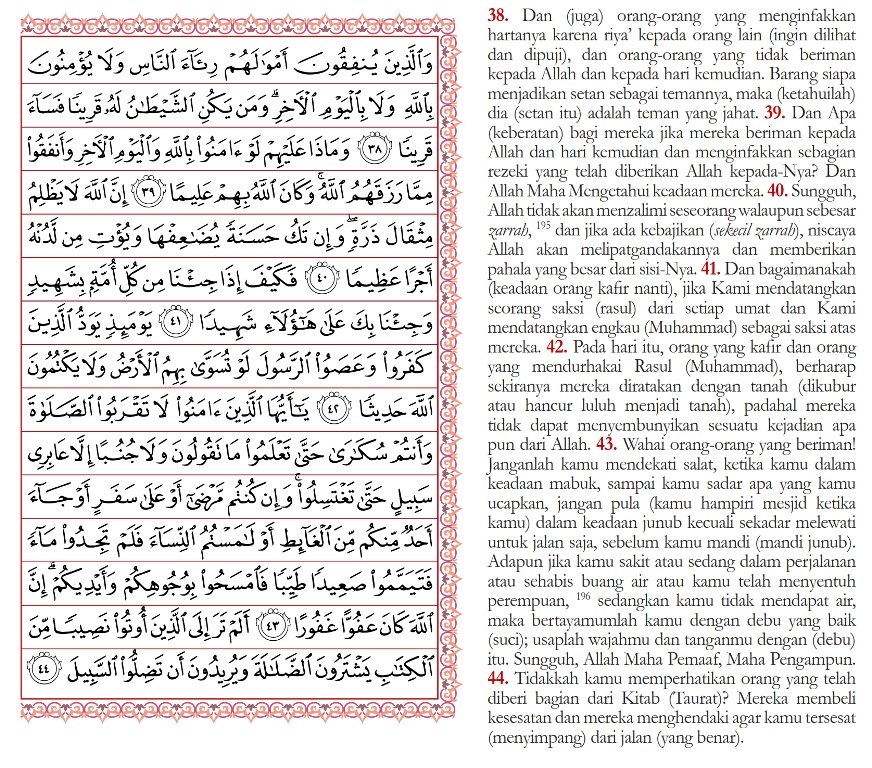 وَٱلَّذِينَ يُنفِقُونَ أَمْوَٰلَهُمْ رِئَآءَ ٱلنَّاسِ وَلَا يُؤْمِنُونَ
بِٱللَّهِ وَلَا بِٱلْيَوْمِ ٱلْآخِرِ ۗ وَمَن يَكُنِ ٱلشَّيْطَٰنُ لَهُۥ قَرِينًا فَسَآءَ
قَرِينًا ﴿٣٨﴾ وَمَاذَا عَلَيْهِمْ لَوْ ءَامَنُوا۟ بِٱللَّهِ وَٱلْيَوْمِ ٱلْآخِرِ وَأَنفَقُوا۟
مِمَّا رَزَقَهُمُ ٱللَّهُ ۚ وَكَانَ ٱللَّهُ بِهِمْ عَلِيمًا ﴿٣٩﴾ إِنَّ ٱللَّهَ لَا يَظْلِمُ
مِثْقَالَ ذَرَّةٍ ۖ وَإِن تَكُ حَسَنَةً يُضَٰعِفْهَا وَيُؤْتِ مِن لَّدُنْهُ
أَجْرًا عَظِيمًا ﴿٤٠﴾ فَكَيْفَ إِذَا جِئْنَا مِن كُلِّ أُمَّةٍۭ بِشَهِيدٍ
وَجِئْنَا بِكَ عَلَىٰ هَٰٓؤُلَآءِ شَهِيدًا ﴿٤١﴾ يَوْمَئِذٍ يَوَدُّ ٱلَّذِينَ
كَفَرُوا۟ وَعَصَوُا۟ ٱلرَّسُولَ لَوْ تُسَوَّىٰ بِهِمُ ٱلْأَرْضُ وَلَا يَكْتُمُونَ
ٱللَّهَ حَدِيثًا ﴿٤٢﴾ يَٰٓأَيُّهَا ٱلَّذِينَ ءَامَنُوا۟ لَا تَقْرَبُوا۟ ٱلصَّلَوٰةَ
وَأَنتُمْ سُكَٰرَىٰ حَتَّىٰ تَعْلَمُوا۟ مَا تَقُولُونَ وَلَا جُنُبًا إِلَّا عَابِرِى
سَبِيلٍ حَتَّىٰ تَغْتَسِلُوا۟ ۚ وَإِن كُنتُم مَّرْضَىٰٓ أَوْ عَلَىٰ سَفَرٍ أَوْ جَآءَ
أَحَدٌ مِّنكُم مِّنَ ٱلْغَآئِطِ أَوْ لَٰمَسْتُمُ ٱلنِّسَآءَ فَلَمْ تَجِدُوا۟ مَآءً
فَتَيَمَّمُوا۟ صَعِيدًا طَيِّبًا فَٱمْسَحُوا۟ بِوُجُوهِكُمْ وَأَيْدِيكُمْ ۗ إِنَّ
ٱللَّهَ كَانَ عَفُوًّا غَفُورًا ﴿٤٣﴾ أَلَمْ تَرَ إِلَى ٱلَّذِينَ أُوتُوا۟ نَصِيبًا مِّنَ
ٱلْكِتَٰبِ يَشْتَرُونَ ٱلضَّلَٰلَةَ وَيُرِيدُونَ أَن تَضِلُّوا۟ ٱلسَّبِيلَ ﴿٤٤﴾
38. Dan (juga) orang-orang yang menginfakkan
hartanya karena riya’ kepada orang lain (ingin dilihat
dan dipuji), dan orang-orang yang tidak beriman
kepada Allah dan kepada hari kemudian. Barang siapa
menjadikan setan sebagai temannya, maka (ketahuilah)
dia (setan itu) adalah teman yang jahat. 39. Dan Apa
(keberatan) bagi mereka jika mereka beriman kepada
Allah dan hari kemudian dan menginfakkan sebagian
rezeki yang telah diberikan Allah kepada-Nya? Dan
Allah Maha Mengetahui keadaan mereka. 40. Sungguh,
Allah tidak akan menzalimi seseorang walaupun sebesar
zarrah, 195 dan jika ada kebajikan (sekecil zarrah), niscaya
Allah akan melipatgandakannya dan memberikan
pahala yang besar dari sisi-Nya. 41. Dan bagaimanakah
(keadaan orang kafir nanti), jika Kami mendatangkan
seorang saksi (rasul) dari setiap umat dan Kami
mendatangkan engkau (Muhammad) sebagai saksi atas
mereka. 42. Pada hari itu, orang yang kafir dan orang
yang mendurhakai Rasul (Muhammad), berharap
sekiranya mereka diratakan dengan tanah (dikubur
atau hancur luluh menjadi tanah), padahal mereka
tidak dapat menyembunyikan sesuatu kejadian apa
pun dari Allah. 43. Wahai orang-orang yang beriman!
Janganlah kamu mendekati salat, ketika kamu dalam
keadaan mabuk, sampai kamu sadar apa yang kamu
ucapkan, jangan pula (kamu hampiri mesjid ketika
kamu) dalam keadaan junub kecuali sekadar melewati
untuk jalan saja, sebelum kamu mandi (mandi junub).
Adapun jika kamu sakit atau sedang dalam perjalanan
atau sehabis buang air atau kamu telah menyentuh
perempuan, 196 sedangkan kamu tidak mendapat air,
maka bertayamumlah kamu dengan debu yang baik
(suci); usaplah wajahmu dan tanganmu dengan (debu)
itu. Sungguh, Allah Maha Pemaaf, Maha Pengampun.
44. Tidakkah kamu memperhatikan orang yang telah
diberi bagian dari Kitab (Taurat)? Mereka membeli
kesesatan dan mereka menghendaki agar kamu tersesat
(menyimpang) dari jalan (yang benar).